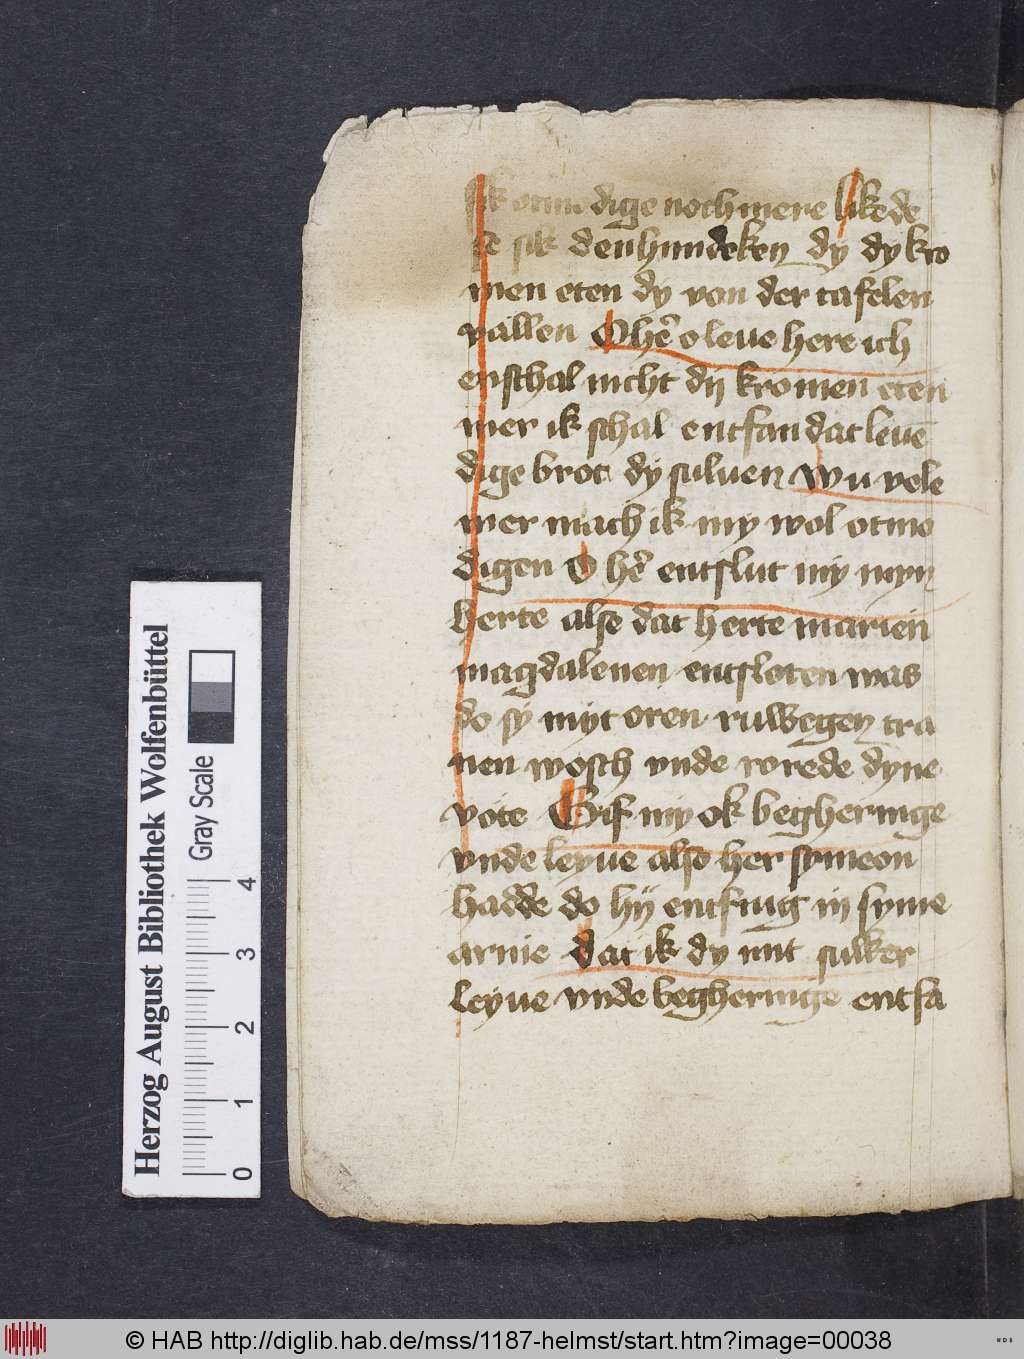 sik otmu dige noch mere likede
se sik den hundeken dy dy kro
men eten dy van der tafelen
vallen O her o leue here ich
enschal nicht dij kromen eten
mer ik schal entfan dat leuē
dige brot dy suluen Wu vele
mer mach ik my wol otmo
digen O her entslut my myn
herte alse dat herte marien
magdalenen entsloten was
do sy myt oren ruwegen tra
nen wosch vnde rorede dyne
vote Gif my ok begheringe
vnde leyue also her symeon
hadde do hy entfing in syme
arme dat ik dy mit sulker
leyue vnde begheringe entfa
Herzog August Bibliothek Wolfenbüttel
Gray Scale
0 1 2 3 4
© HAB http://diglib.hab.de/mss/1187-helmst/start.htm?image=00038
WDB